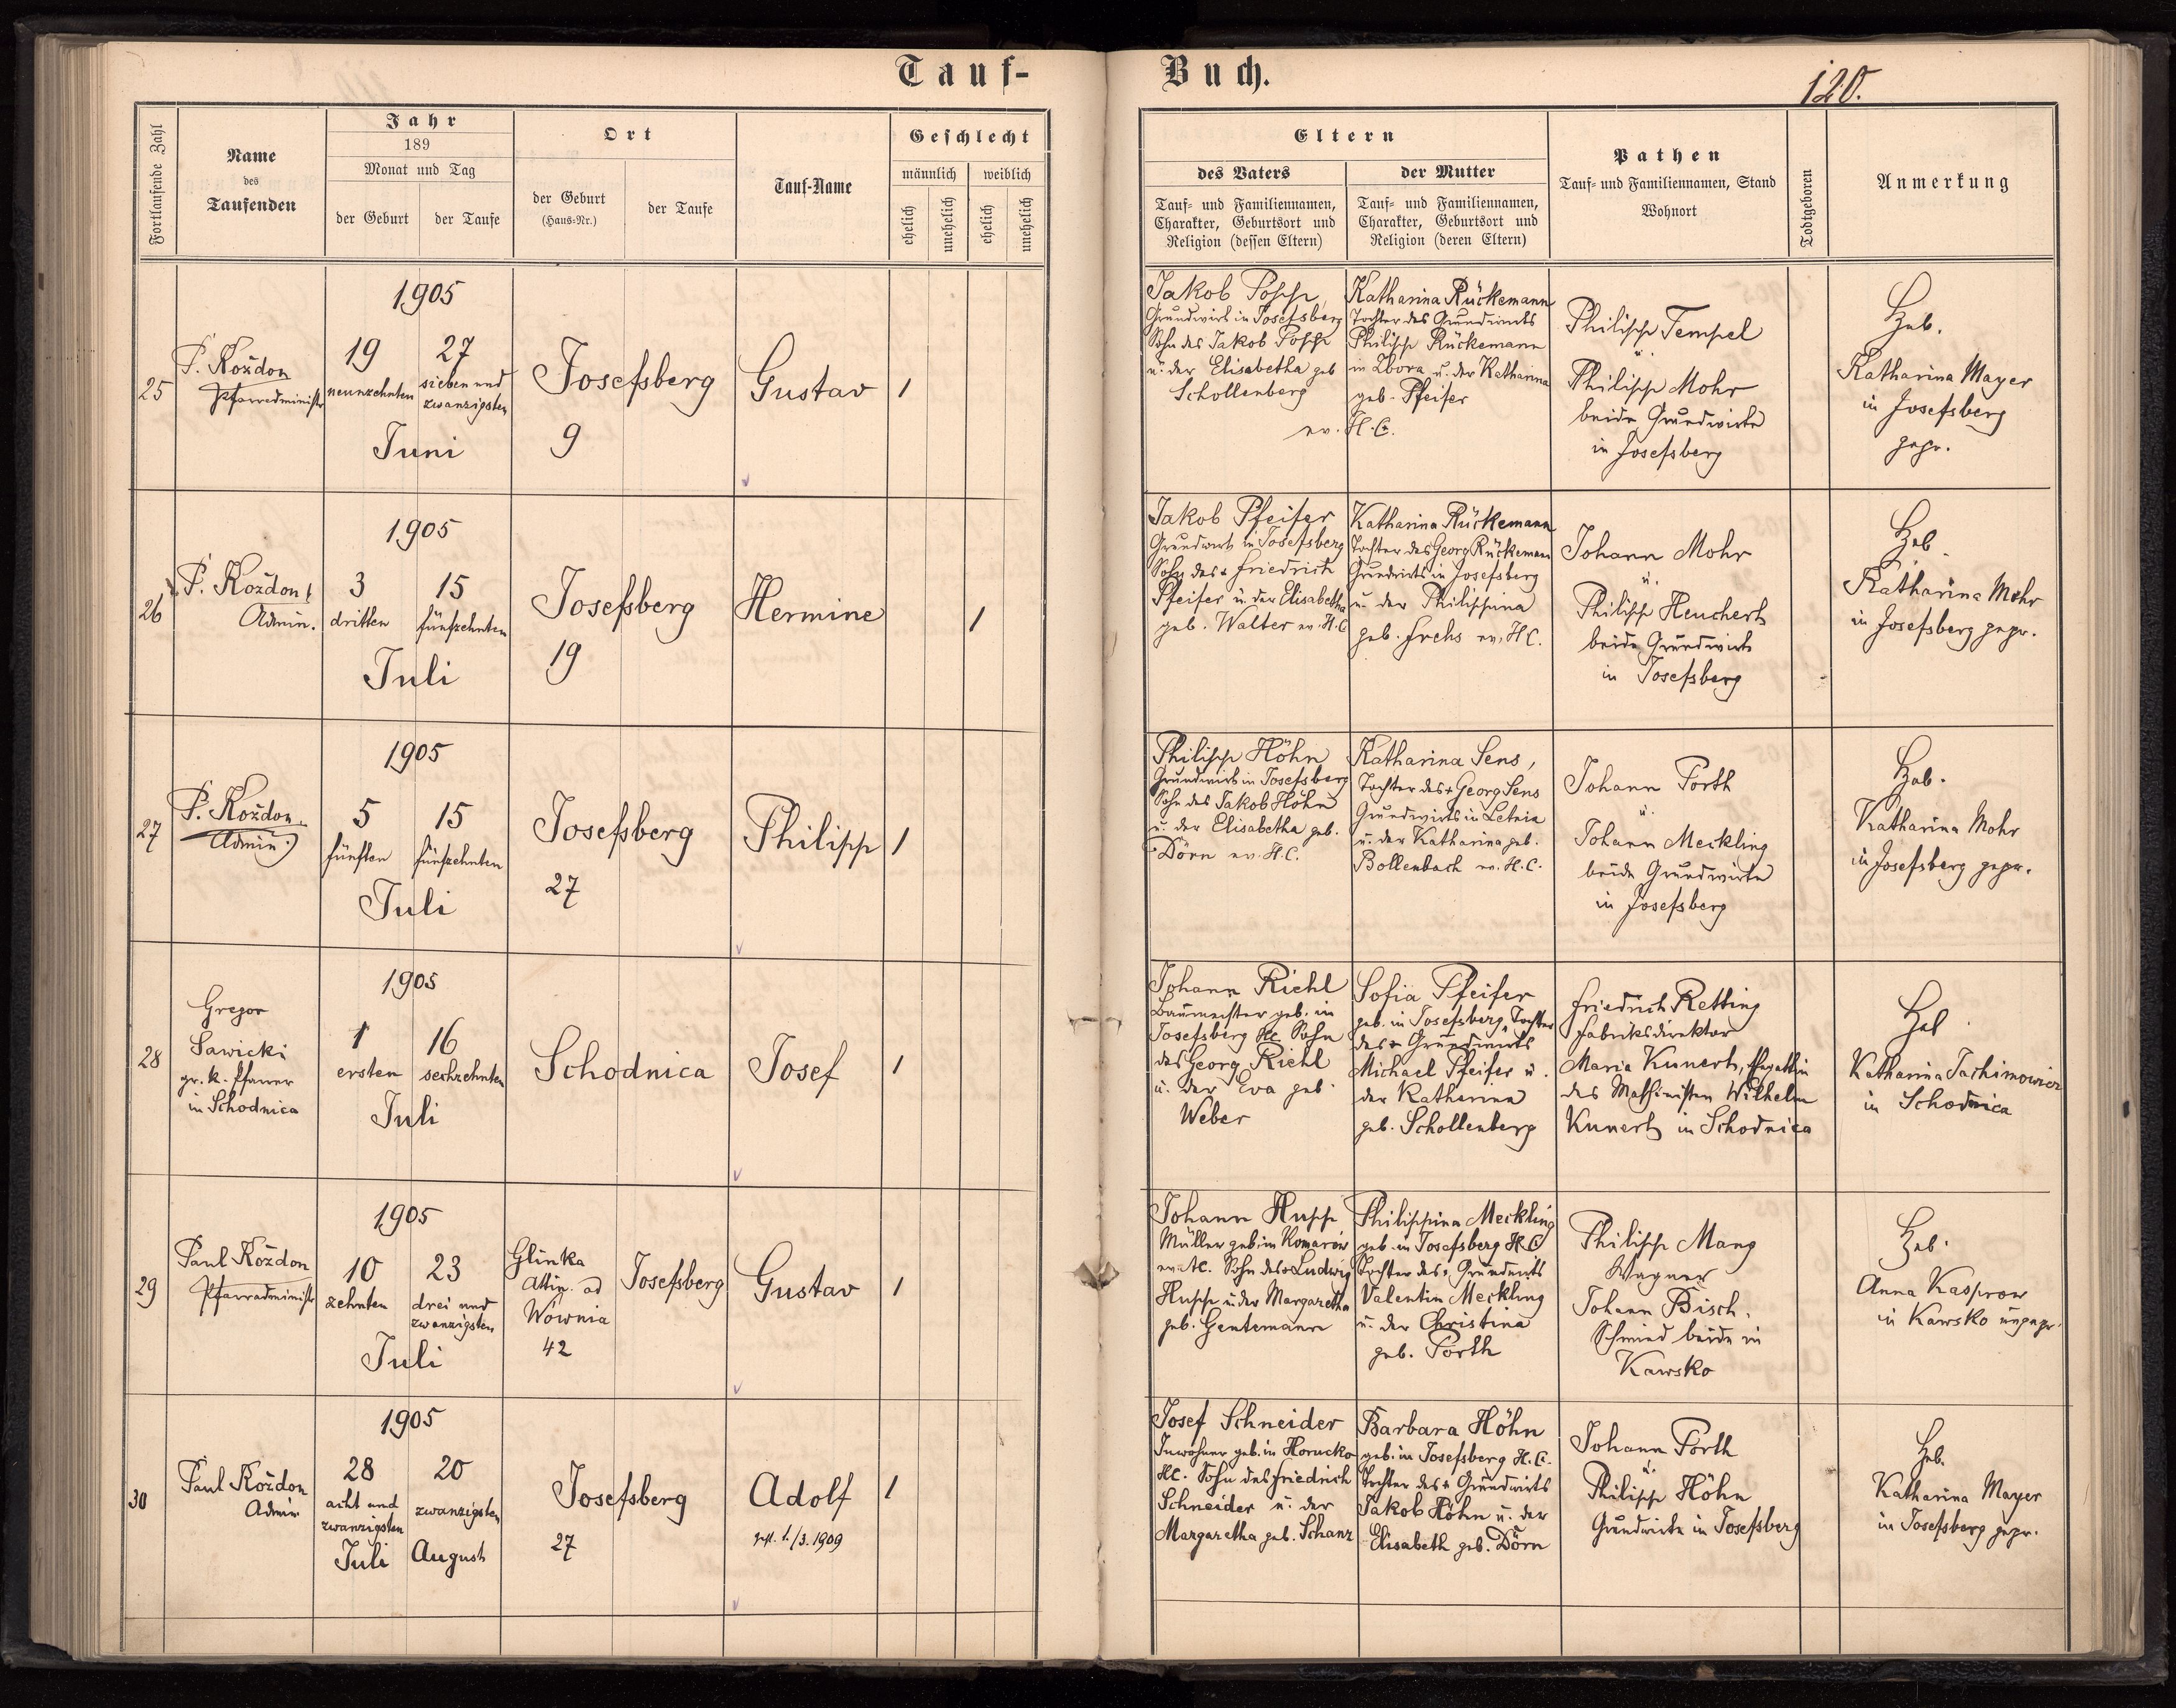 Tauf-
Buch.
120.
Fortlaufende Zahl
Name
des
Taufenden
Jahr
189
Monat und Tag
der Geburt
der Taufe
Ort
der Geburt
(Haus-Nr.)
der Taufe
Tauf-Name
Geschlecht
männlich
weiblich
ehelich
unehelich
ehelich
unehelich
Eltern
des Vaters
Tauf- und Familiennamen,
Charakter, Geburtsort und
Religion (dessen Eltern)
der Mutter
Tauf- und Familiennamen,
Charakter, Geburtsort und
Religion (deren Eltern)
Pathen
Tauf- und Familiennamen, Stand
Wohnort
Todtgeboren
Anmerkung
25
P. Kożdon
Pfarradministr
1905
19
neunzehnten
27
sieben und
zwanzigsten
Juni
Josefsberg
9
Gustav
1
Jakob Popp,
Grundwirt in Josefsberg
Sohn des Jakob Popp
u. der Elisabetha geb
Schollenberg
Katharina Rückemann
Tochter des Grundwirts
Philipp Rückemann
in Ebora u. der Katharina
geb. Pfeifer
ev. H.C.
Philipp Tempel
u.
Philipp Mohr
beide Grundwirte
in Josefsberg
Heb.
Katharina Mayer
in Josefsberg
gepr.
26
P. Kożdon
Admin.
1905
3
dritten
15
fünfzehnten
Juli
Josefsberg
19
Hermine
1
Jakob Pfeifer
Grundwirt in Josefsberg
Sohn des + Friedrich
Pfeifer u. der Elisabetha
geb. Walter ev. H.C
Katharina Rückemann
Tochter des Georg Rückemann
Grundwirts in Josefsberg
u. der Philippina
geb. Frehs ev. H C.
Johann Mohr
u.
Philipp Heuchert
beide Grundwirte
in Josefsberg
Heb.
Katharina Mohr
in Josefsberg gepr.
27
P. Kożdon
Admin.
1905
5
fünften
15
fünfzehnten
Juli
Josefsberg
27
Philipp
1
Philipp Höhn
Grundwirt in Josefsberg
Sohn des Jakob Höhn
u. der Elisabetha geb.
Dörn ev. H.C.
Katharina Sens,
Tochter des + Georg Sens
Grundwirts in Letnia
u. der Katharina geb.
Bollenbach ev. H.C.
Johann Porth
u.
Johann Meckling
beide Grundwirte
in Josefsberg
Heb.
Katharina Mohr
in Josefsberg gepr.
28
Gregor
Sawicki
gr. k. Pfarrer
in Schodnica
1905
1
ersten
16
sechzehnten
Juli
Schodnica
Josef
1
Johann Richl
Baumeister geb. in
Josefsberg HC Sohn
des Georg Richl
u. der Eva geb.
Weber
Sofia Pfeifer
geb. in Josefsberg, Tochter
des + Grundwirts
Michael Pfeifer u.
der Katharina
geb. Schollenberg
Friedrich Retting
Fabriksdirektor
Maria Kunert, Ehegattin
des Maschinisten Wilhelm
Kunert in Schodnica
Heb.
Katharina Jachimowicz
in Schodnica
29
Paul Kożdon
Pfarradministr
1905
10
zehnten
23
drei und
zwanzigsten
Juli
Glinka
Attin. ad
Wównia
42
Josefsberg
Gustav
1
Johann Hupp
Müller geb. in Komarów
ev. AC. Sohn des + Ludwig
Hupp u. der Margaretha
geb. Gentemann
Philippina Meckling
geb. in Josefsberg H.C
Tochter des + Grundwirts
Valentin Meckling
u. der Christina
geb. Porth
Philipp Mang
Wagner
Johann Bisch,
Schmied beide in
Kawsko
Heb.
Anna Kasprow
in Kawsko ungepr.
30
Paul Kożdon
Admin
1905
28
acht und
zwanzigsten
Juli
20
zwanzigsten
August
Josefsberg
27
Adolf
1./3. 1909
1
Josef Schneider
Inwohner geb. in Horucko
HC. Sohn des Friedrich
Schneider u. der
Margaretha geb. Schanz
Barbara Höhn
geb. in Josefsberg H.C.
Tochter des + Grundwirts
Jakob Höhn u. der
Elisabeth geb. Dörn
Johann Porth
u.
Philipp Höhn
Grundwirte in Josefsberg
Heb.
Katharina Mayer
in Josefsberg gepr.